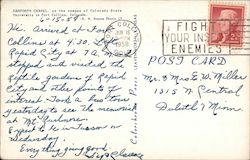 DANFORTH CHAPEL, on the campus of Colorado State
University in Fort Collins, Colorado.
6-15-58
Hi. Arrived at Fort
Collins at 4:30. Left
Rapid City at 7 A.M. and
stopped and visited the
Reptile gardens of Rapid
City and other points of
interest. Took a bus tour
yesterday to see the memorial
at Mt Rushmore.
Expect to be in Tucson on
Wednesday.
Everything going good.
FORT COLLINS
JUN 16
1958
FIGHT
YOUR INSECT
ENEMIES
POST CARD
Mr. & Mrs E W Miller
1315 N Central
Duluth 7 Minn